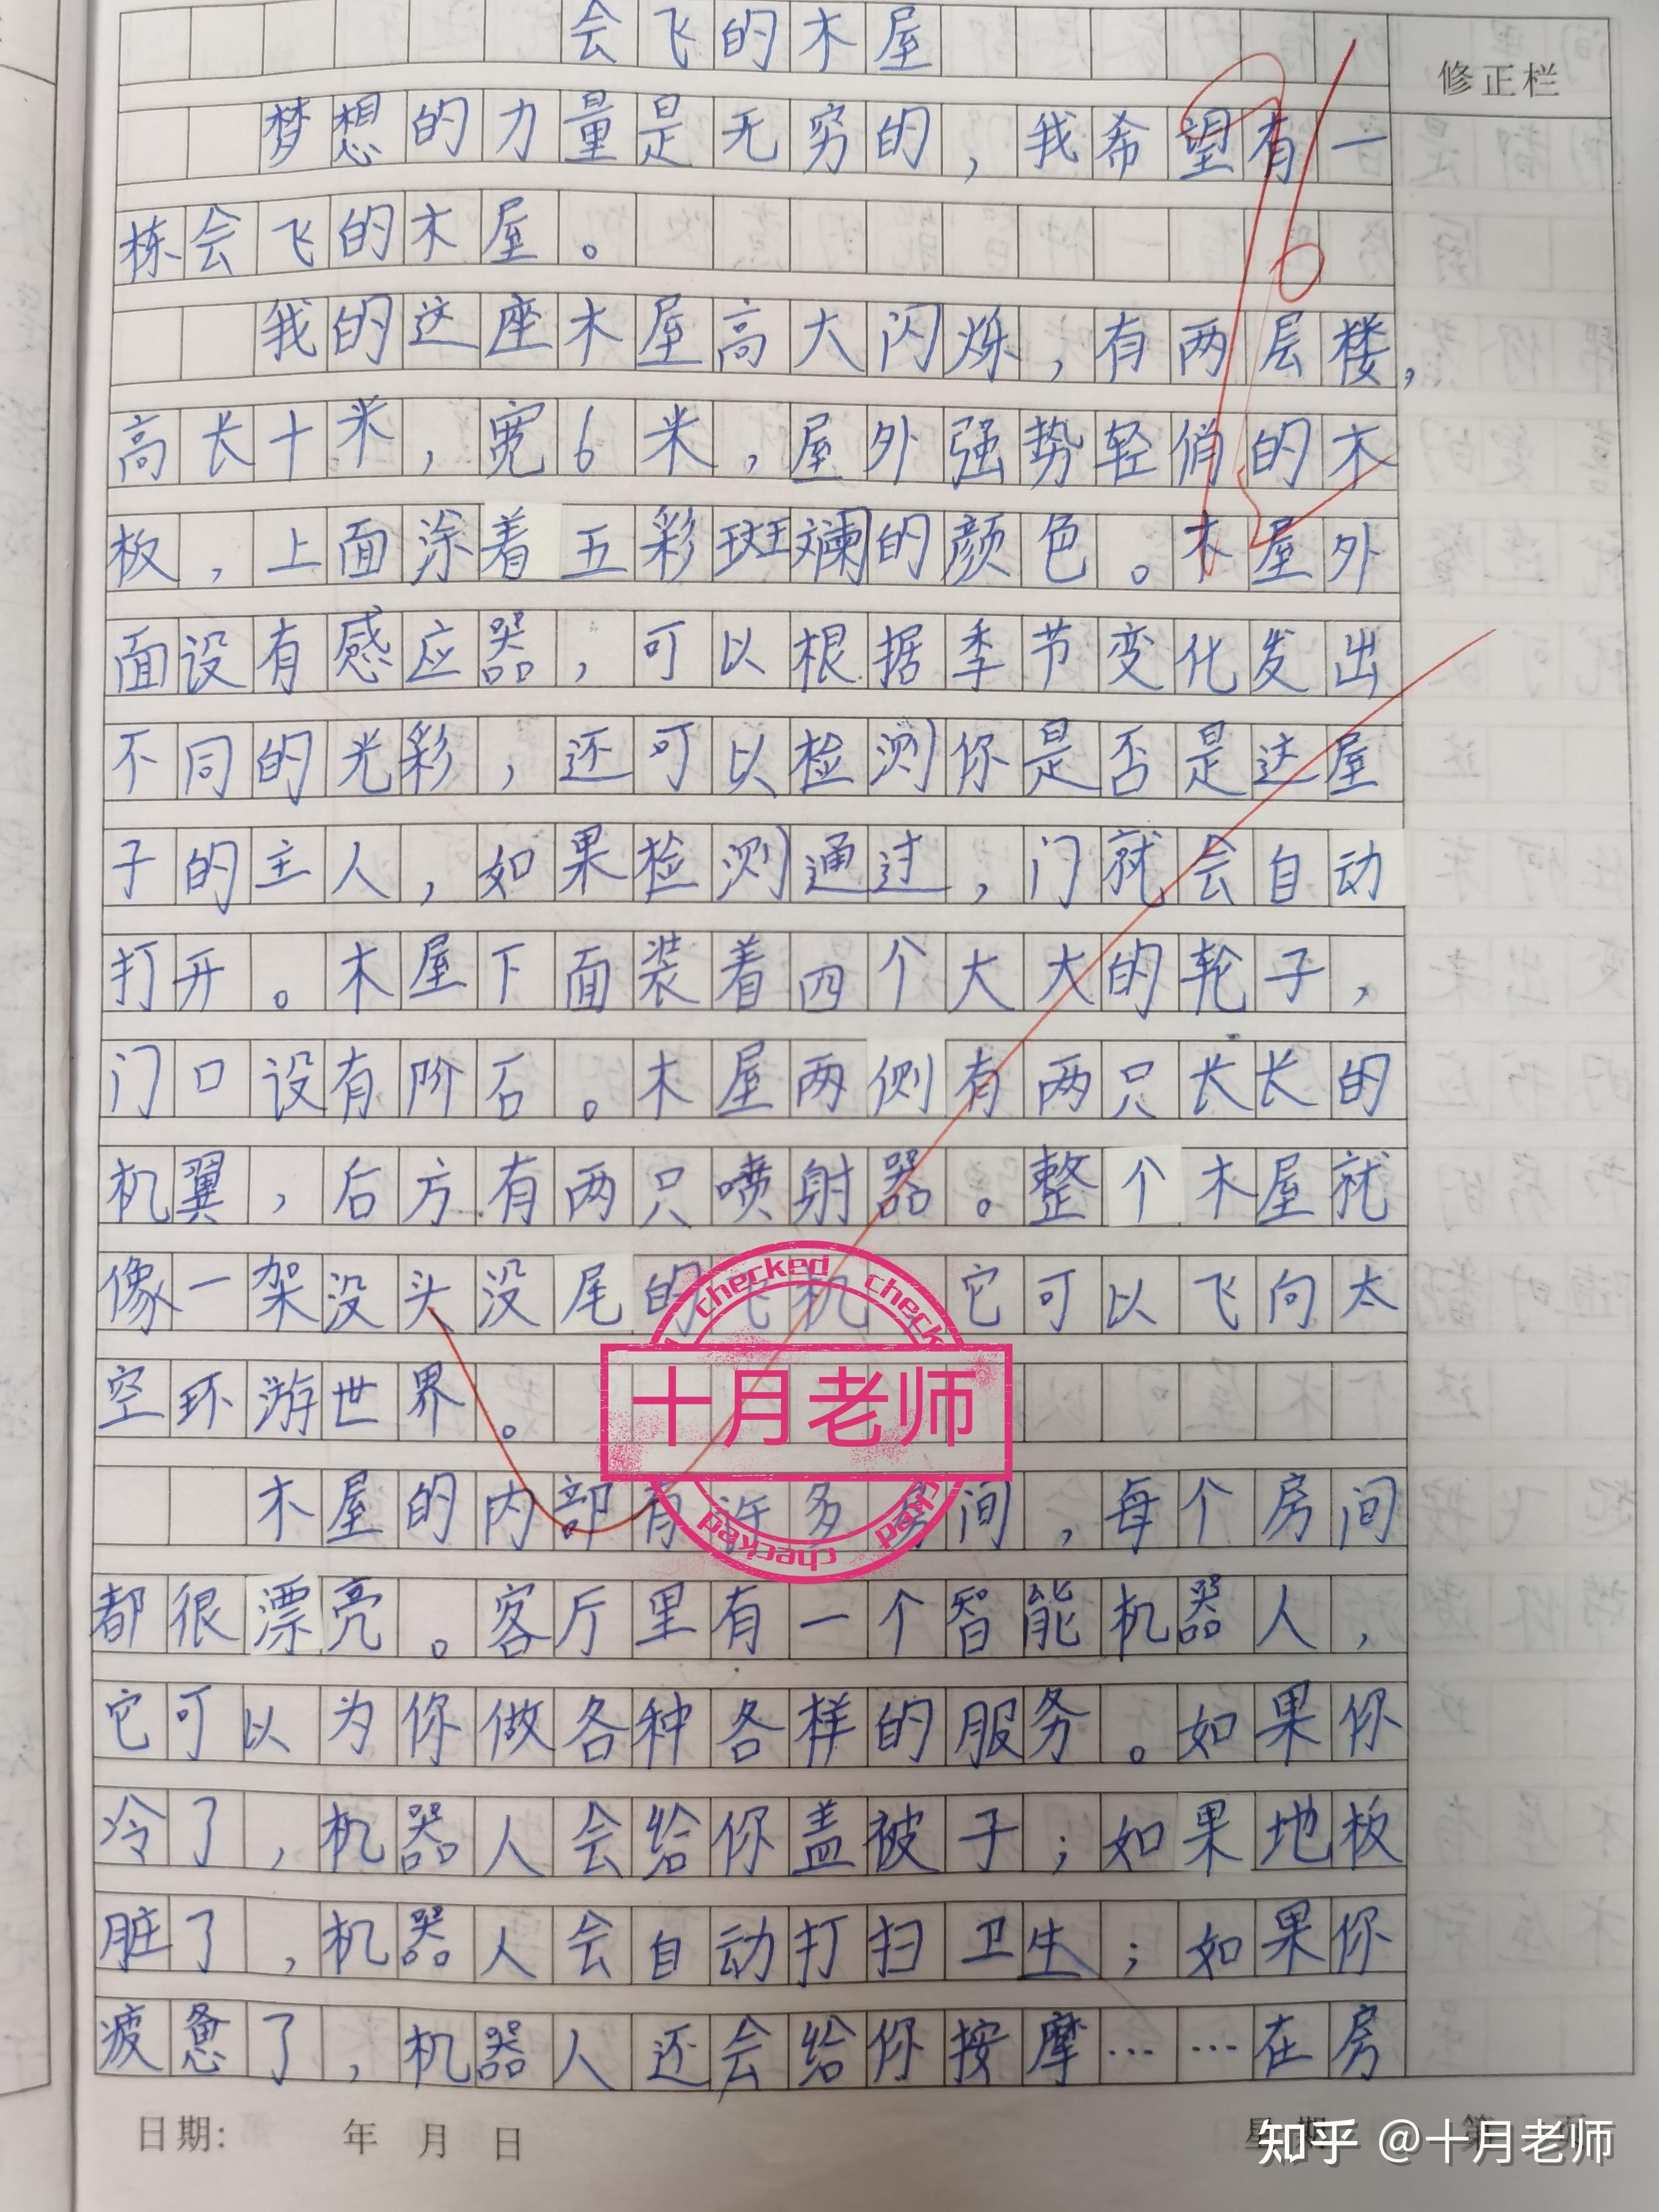 会飞的木屋
修正栏
梦想的力量是无穷的，我希望有一
栋会飞的木屋。
我的这座木屋高大闪烁，有两层楼，
高长十米，宽6米，屋外强势轻俏的木
板，上面涂着五彩斑斓的颜色。木屋外
面设有感应器，可以根据季节变化发出
不同的光彩，还可以检测你是否是这屋
子的主人，如果检测通过，门就会自动
打开。木屋下面装着四个大大的轮子，
门口设有阶石。木屋两侧有两只长长的
机翼，后方有两只喷射器。整个木屋就
像一架没头没尾的飞机，它可以飞向太
空环游世界。
木屋的内部有许多房间，每个房间
都很漂亮。客厅里有一个智能机器人，
它可以为你做各种各样的服务。如果你
冷了，机器人会给你盖被子；如果地板
脏了，机器人会自动打扫卫生；如果你
疲惫了，机器人还会给你按摩……在房
checked checked
十月老师
checked checked
日期: 年 月 日
知乎 @十月老师